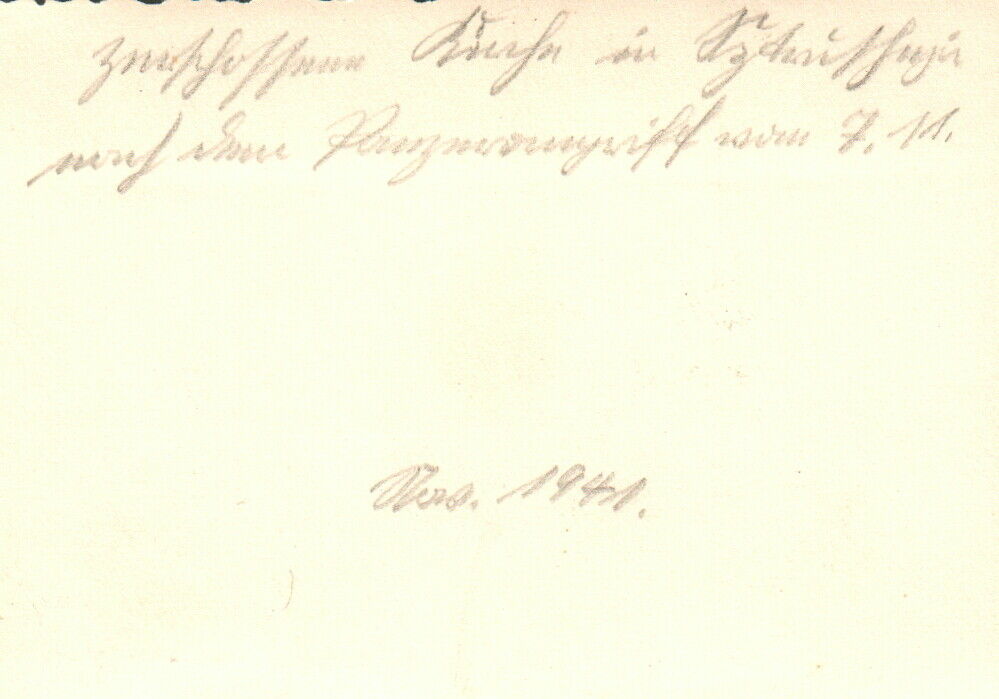 zerschossene Kirche in
nach dem Panzerangriff vom 7. 11.
Nov. 1941.